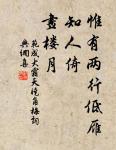 惟有两行低雁
知人倚
画楼月
范成大霜天晓角梅词